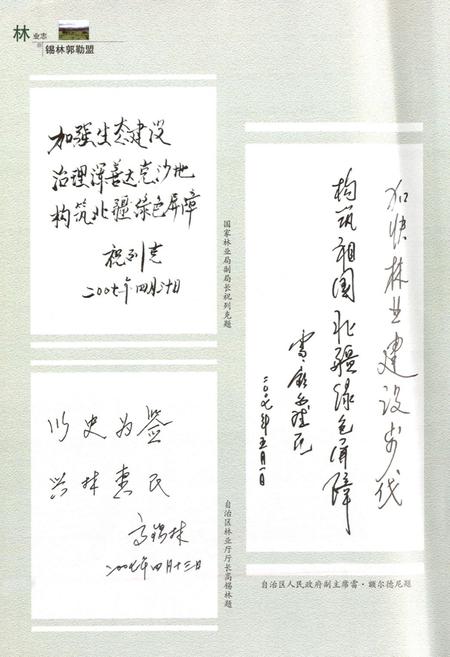 林业志
锡林郭勒盟
加强生态建设
治理浑善达克沙地
构筑北疆绿色屏障
祝列克
二00七年四月廿日
国家林业局副局长祝列克题
以史为鉴
兴林惠民
高锡林
二00七年四月十三日
自治区林业厅厅长高锡林题
加快林业建设步伐
构筑祖国北疆绿色屏障
雷·额尔德尼
二〇〇七年五月一日
自治区人民政府副主席雷·额尔德尼题